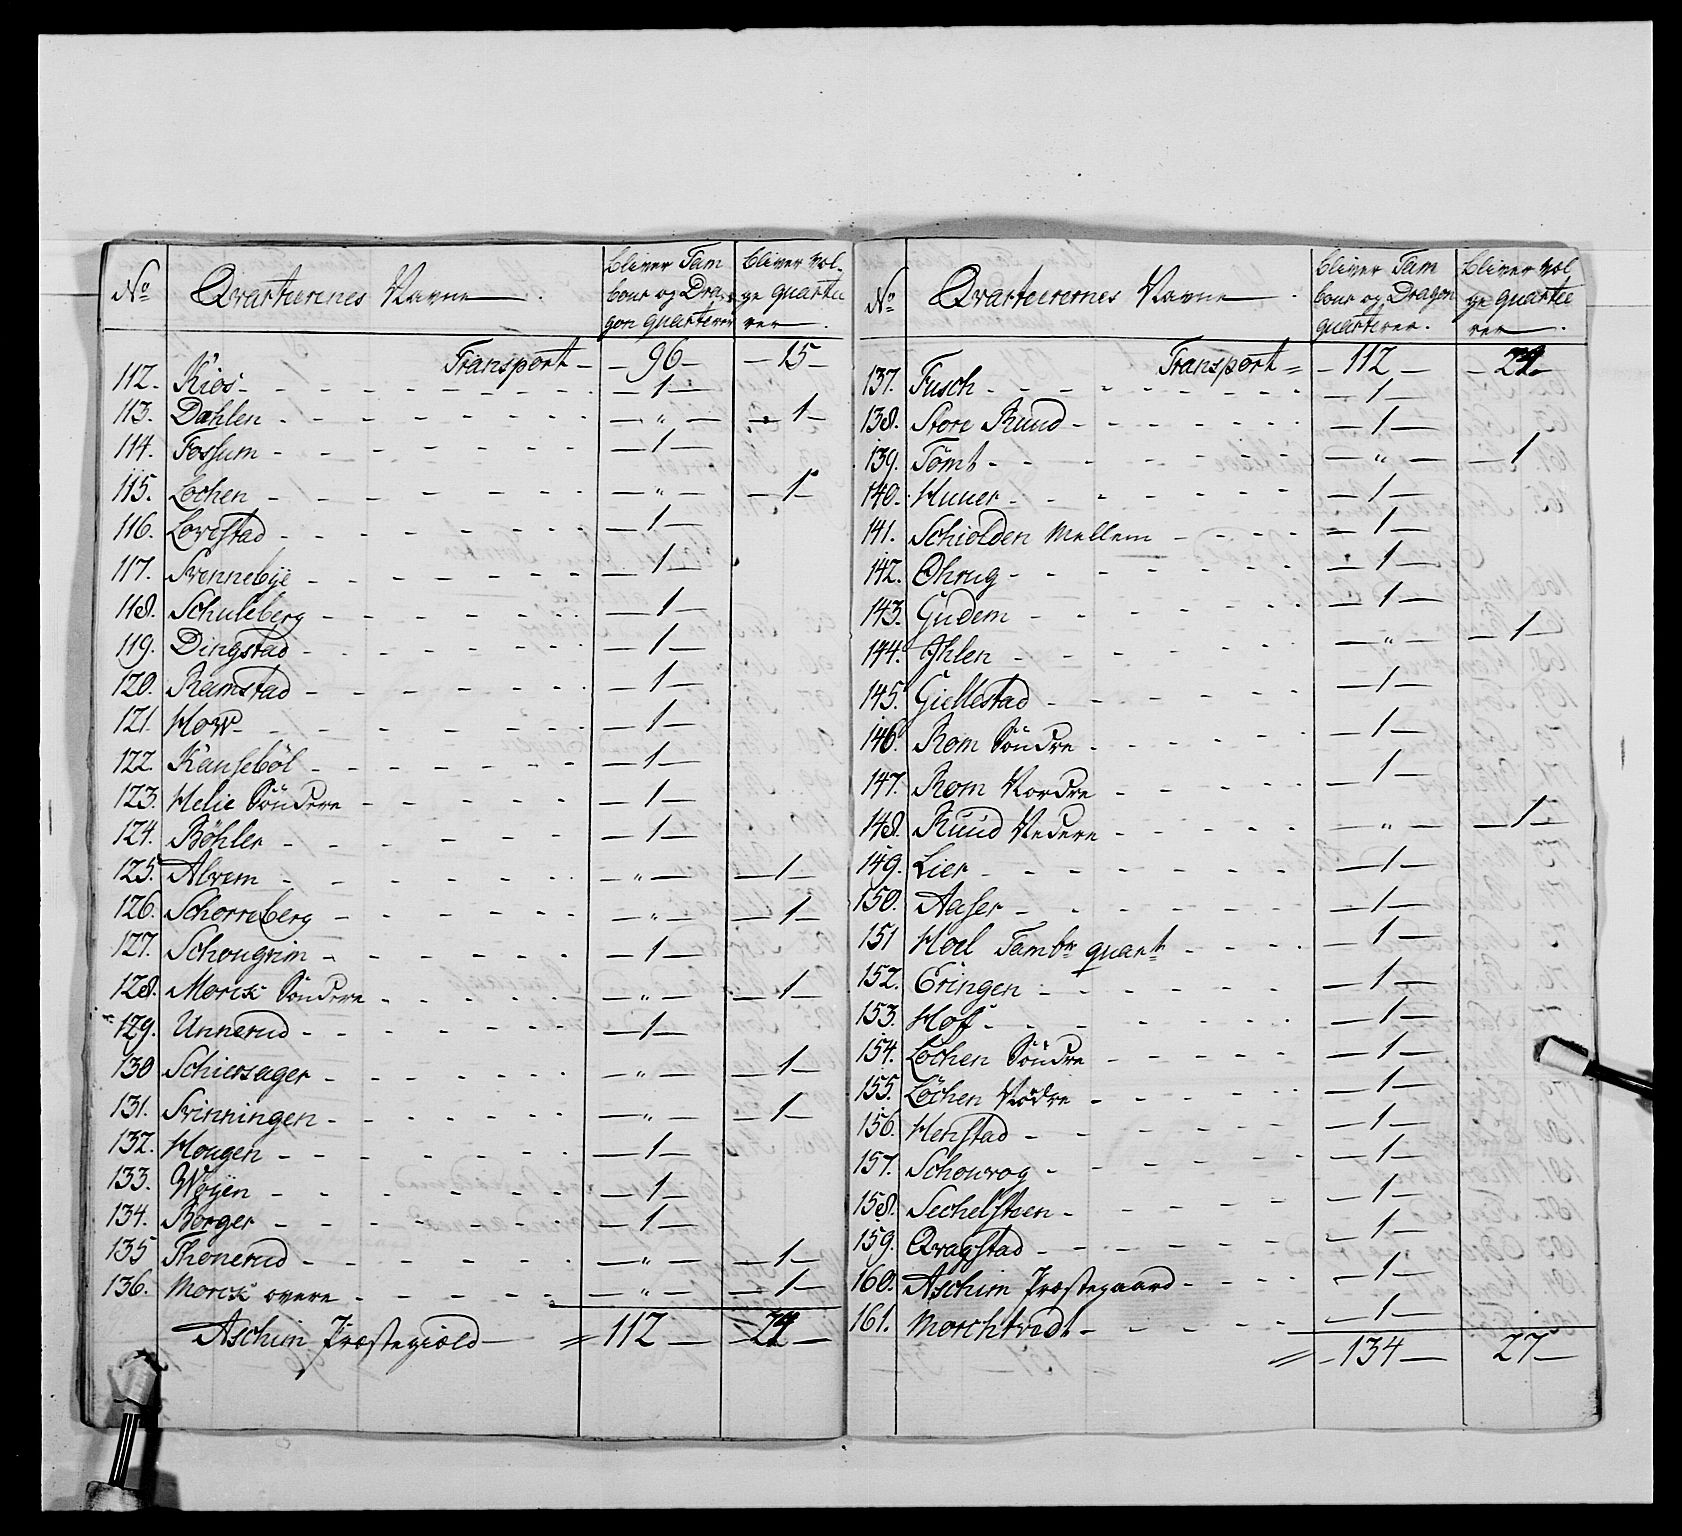 No Qvarterenes Navne bliver Tam bour og Dra gon quarterer bliver ræl ge quartee rer
Transport 96 15
112. Kios 1
113. Dæhlen " 1
114. Fossum 1
115. Lochen " 1
116. Lovestad 1
117. Svennebÿe 1
118. Schuleberg 1
119. Dingstad 1
120. Ramstad 1
121. How 1
122. Kansebøl 1
123. Helie Söndere 1
124. Böhler 1
125. Alvem " 1
126. Schorreberg " 1
127. Schougrim 1
128. Morck Söndere " 1
129. Unnerud 1
130 Schiersager " 1
131. Svinningen " 1
132. Hougen 1
133. Wøyen 1
134. Borger 1
135 Thonerud " 1
136. Morck overe " 1
Aschim Præstegiæld 112 24
No Qvarteerernes Navne bliver Tam bour og Dragon quarterer. bliver ræl ge quartee rer
Transport 112 24
137. Fusch 1
138. Store Ruud 1
139. Tömt " 1
140. Huuer 1
141. Schiolden Mellem 1
142. Ohrug 1
143. Gudem 1
144. Ihlen " 1
145. Giellestad 1
146. Rom Söndre 1
147. Rom Nordre 1
148. Ruud Nedere " 1
149. Lier 1
150. Aaser 1
151 Hoel Tambr quart 1
152. Eringen 1
153. Hoff 1
154. Löchen Söndre 1
155. Löchen Nödre 1
156. Henstad 1
157. Schourog 1
158. Sechelsteen 1
159. Qvagstad 1
160. Aschim Præstegaard 1
161. Morchtvedt 1
134 27